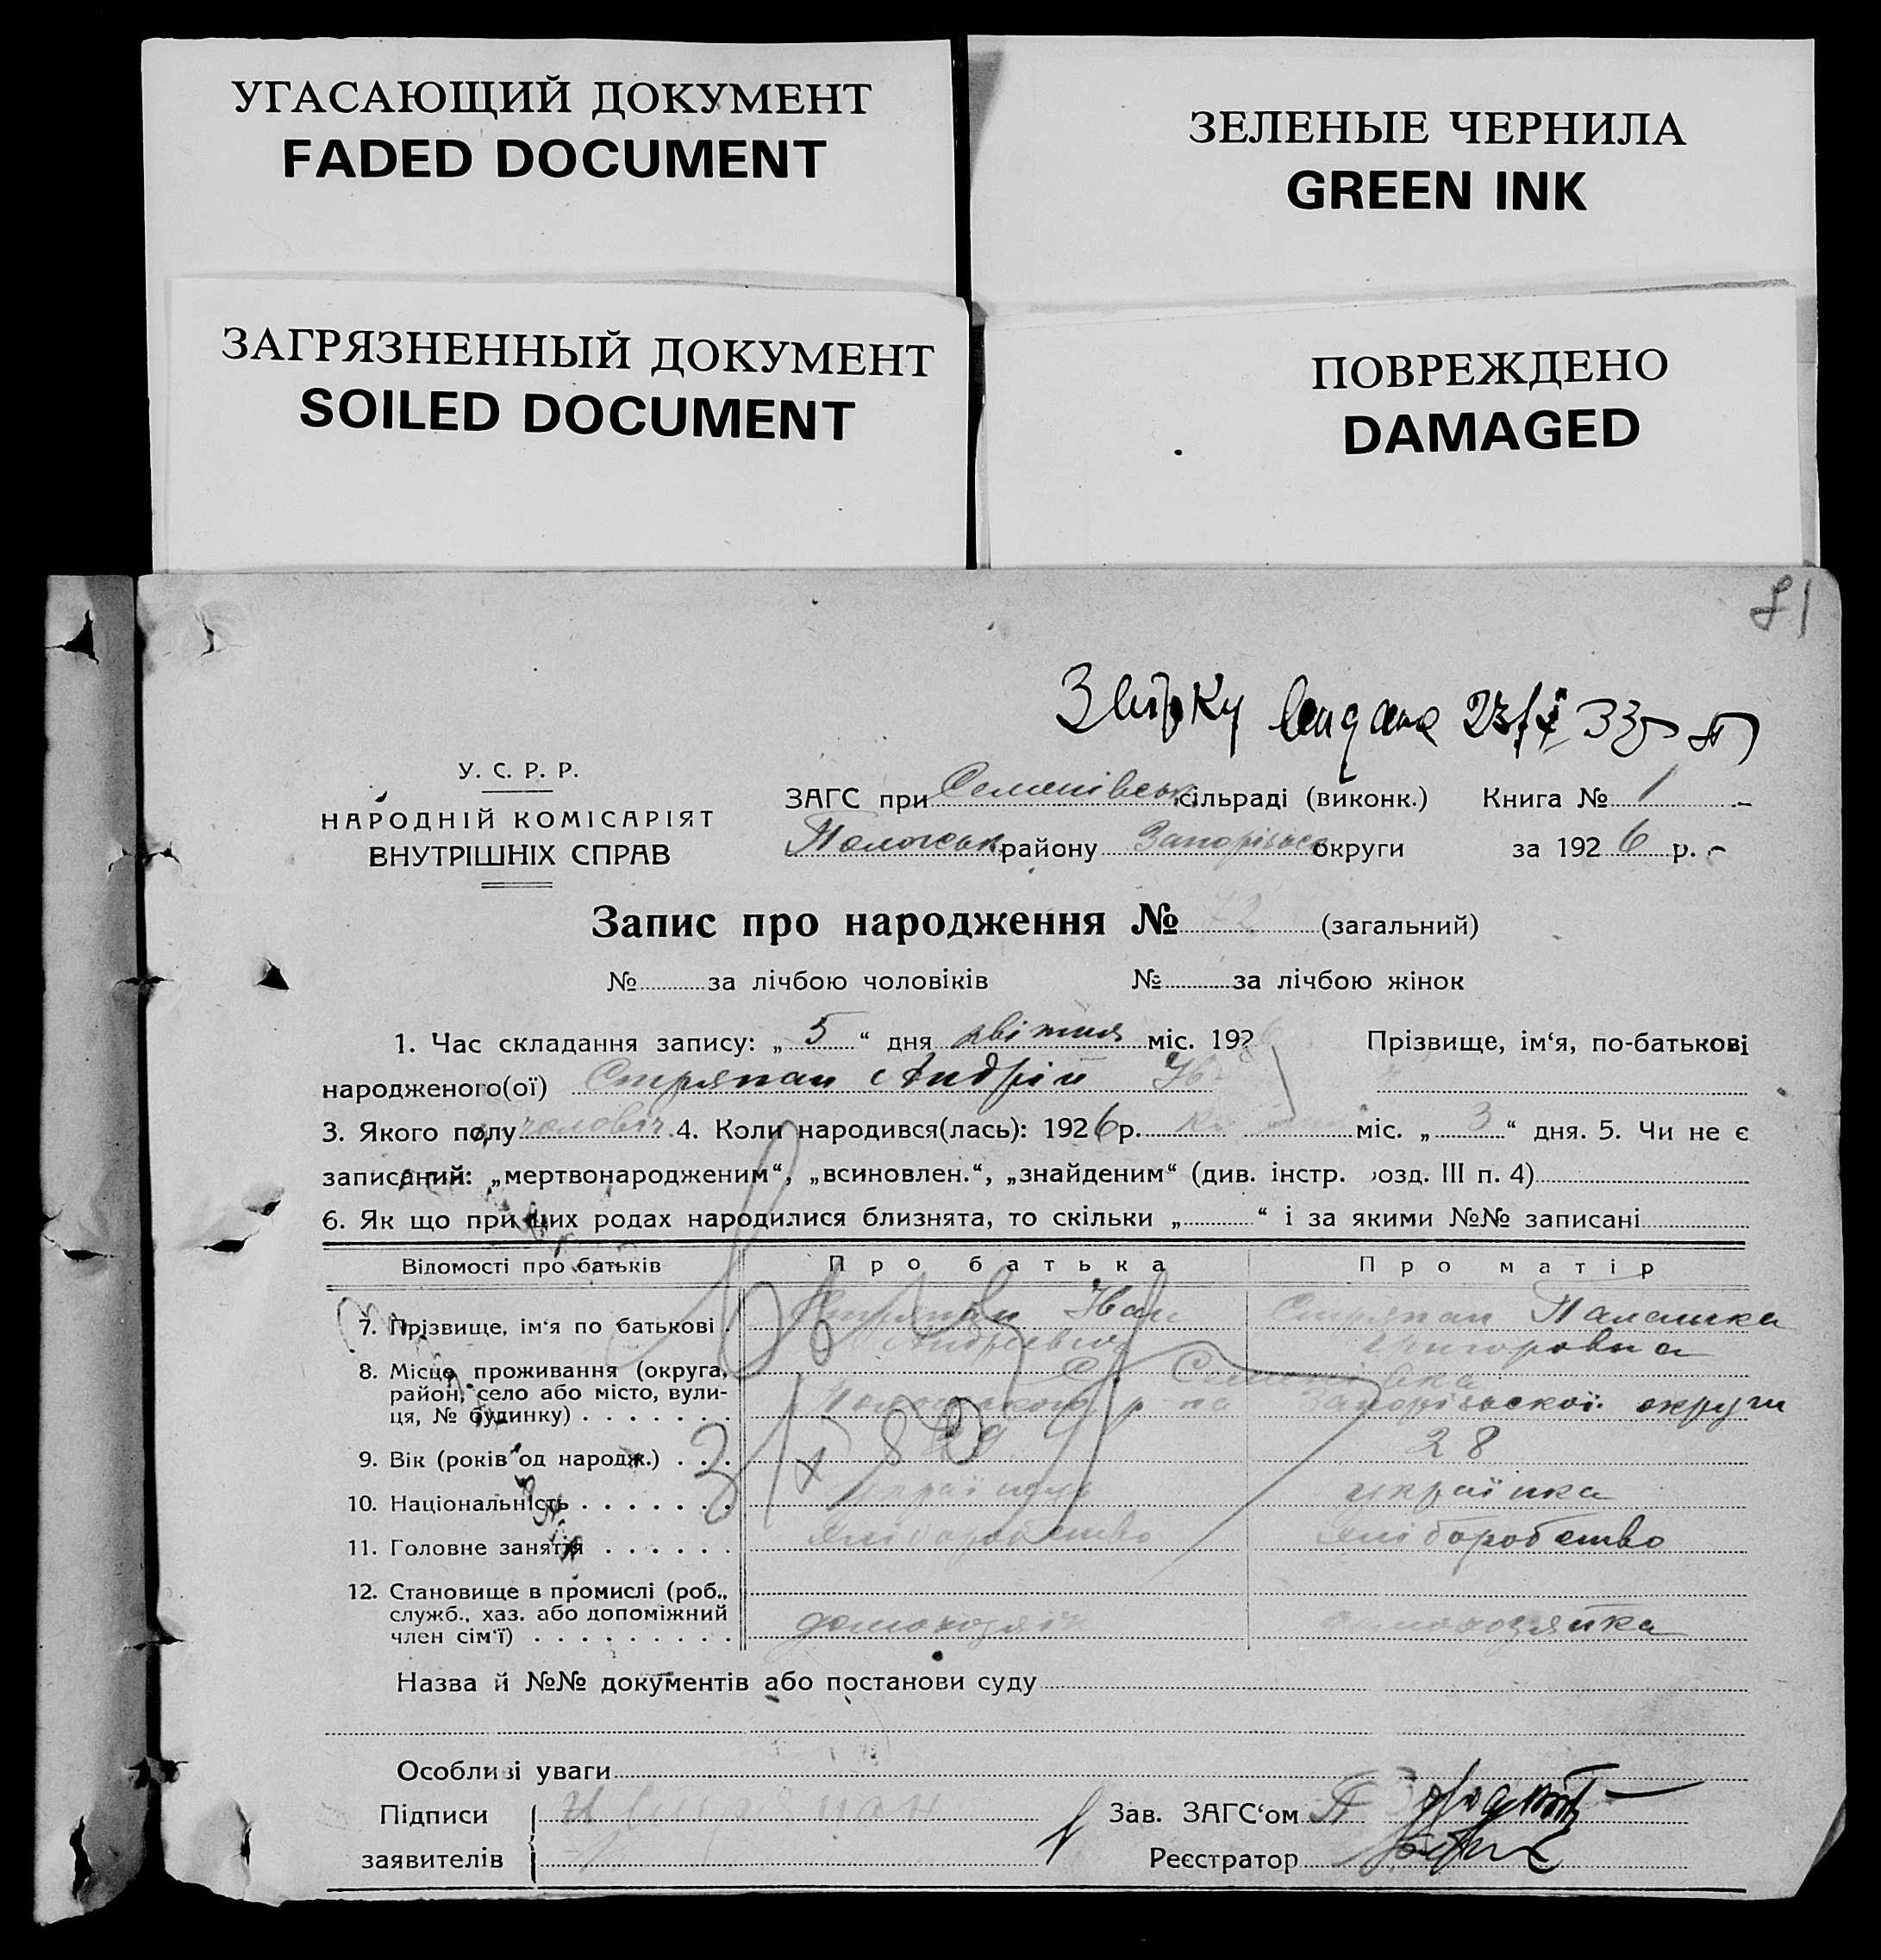 УГАСАЮЩИЙ ДОКУМЕНТ
FADED DOCUMENT
ЗЕЛЕНЫЕ ЧЕРНИЛА
GREEN INK
ЗАГРЯЗНЕННЫЙ ДОКУМЕНТ
SOILED DOCUMENT
ПОВРЕЖДЕНО
DAMAGED
81
У. С. Р. Р.
НАРОДНІЙ КОМІСАРІЯТ
ВНУТРІШНІХ СПРАВ
ЗАГС при Семенівськ сільраді (виконк.) Книга № 1
Пологськ району Запорізьк округи за 1926 р.
Запис про народження № 72 (загальний)
№ за лічбою чоловіків № за лічбою жінок
1. Час складання запису: „ 5 “ дня квітня міс. 192 Прізвище, ім‘я, по-батькові
народженого(ої) Стряпан Андрій Ів
3. Якого полу чоловіч. 4. Коли народився(лась): 1926 р. міс. „ 3 “ дня. 5. Чи не є
записаний: „мертвонародженим“, „всиновлен.“, „знайденим“ (див. інстр. розд. III п. 4)
6. Як що при цих родах народилися близнята, то скільки „ “ і за якими №№ записані
Відомості про батьків Про батька Про матір
7. Прізвище, ім'я по батькові Стряпан Іван Стряпан Палашка
Андрієвич Григоровна
8. Місце проживання (округа, с. Семенівка
район, село або місто, вули- Пологського р-на Запорізьскої округи
ця, № будинку)
9. Вік (років од народж.) 28
10. Національність українець українка
11. Головне заняття хліборобство хліборобство
12. Становище в промислі (роб.,
служб., хаз. або допоміжний домохозяїн домохозяйка
член сім'ї)
Назва й №№ документів або постанови суду
Особливі уваги
Підписи И Стряпан Зав. ЗАГС‘ом
заявителів Реєстратор